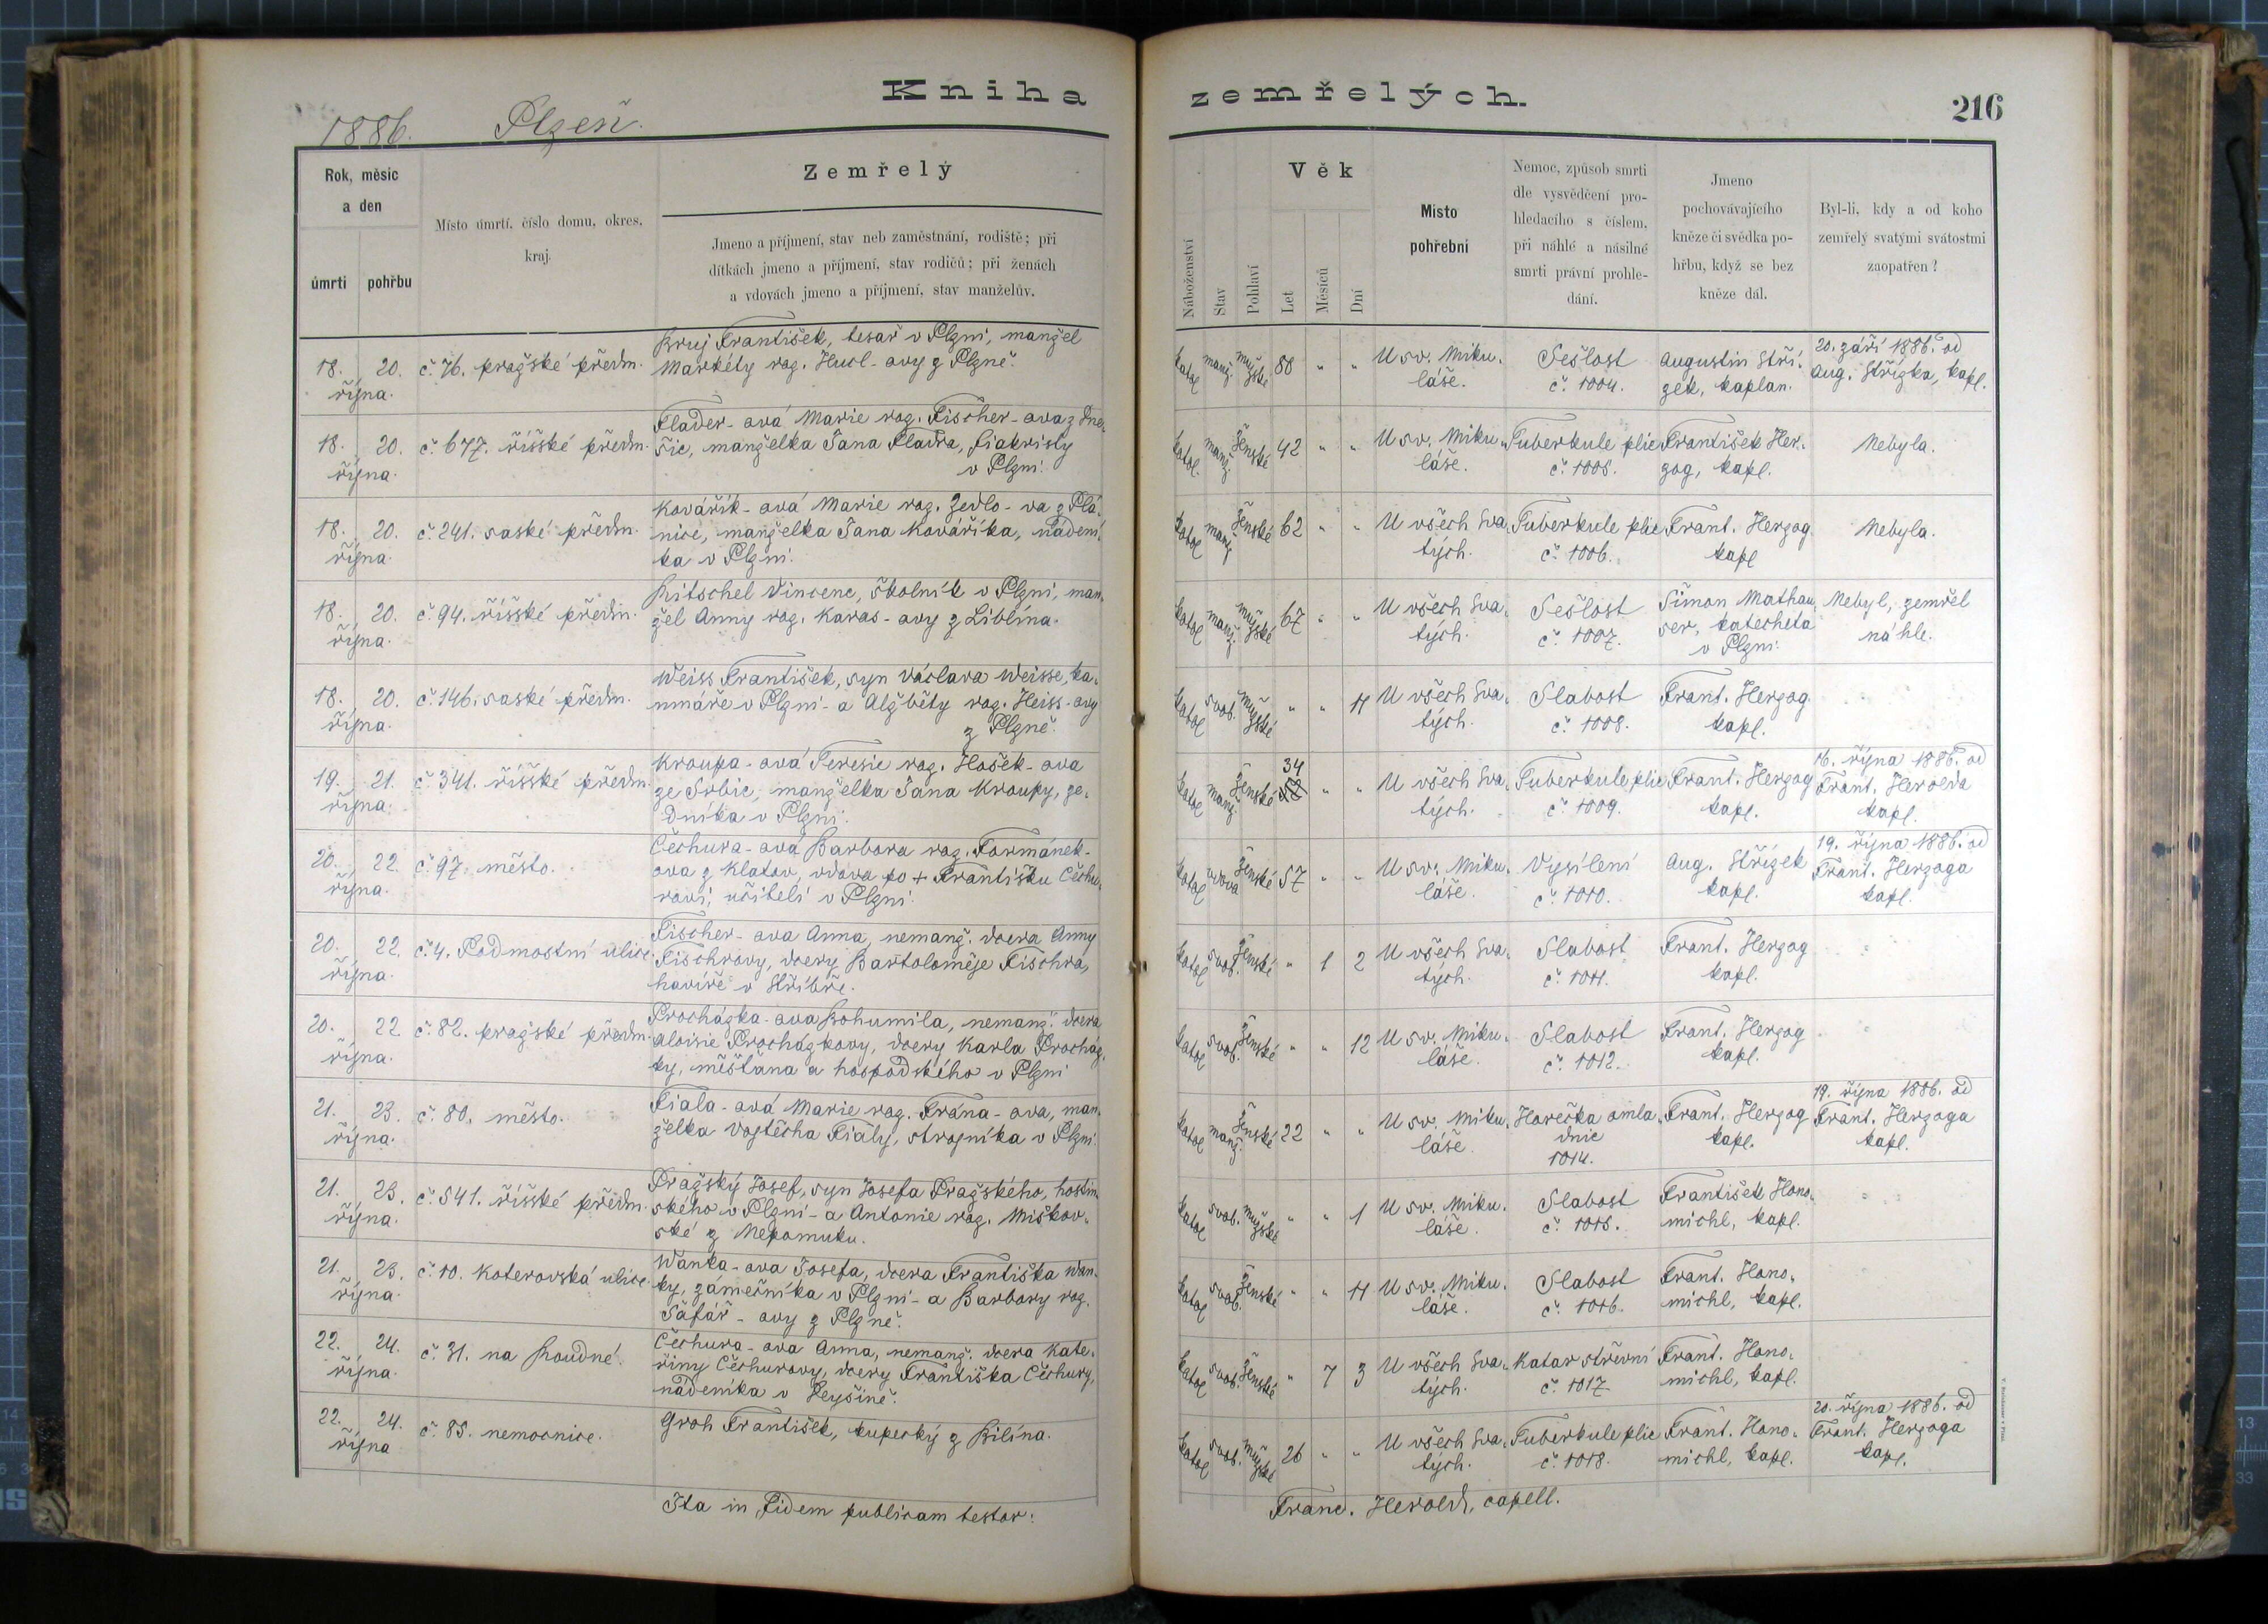 Kniha zemřelých.
1886. Plzeň.
216
Rok, měsíc
a den
úmrtí
pohřbu
Místo úmrtí, číslo domu, okres,
kraj.
Zemřelý
Jmeno a příjmení, stav neb zaměstnání, rodiště; při
dítkách jmeno a příjmení, stav rodičů; při ženách
a vdovách jmeno a příjmení, stav manželův.
Náboženství
Stav
Pohlaví
Věk
Let
Měsíců
Dní
Místo
pohřební
Nemoc, způsob smrti
dle vysvědčení pro-
hledacího s číslem,
při náhlé a násilné
smrti právní prohle-
dání.
Jmeno
pochovávajícího
kněze či svědka po-
hřbu, když se bez
kněze dál.
Byl-li, kdy a od koho
zemřelý svatými svátostmi
zaopatřen?
18. 20.
října.
č. 76. pražské předm.
Bruj František, tesař v Plzni, manžel
Markéty roz. Hucl-ovy z Plzně.
katol manž. mužské 88 " "
U sv. Miku-
láše.
Sešlost
č. 1004.
Augustin Stří-
zek, kaplan.
20. září 1886. od
Aug. Střízka, kapl.
18. 20.
října.
č. 677. říšské předm.
Flader-ová Marie roz. Fischer-ova z Dne-
šic, manželka Jana Fladra, fiakristy
v Plzni.
katol. manž. ženské 42 " "
U sv. Miku-
láše.
Tuberkule plic
č. 1005.
František Her-
zog, kapl.
Nebyla.
18. 20.
října.
č. 241. saské předm.
Kovářík-ová Marie roz. Zedlo-va z Plá-
nice, manželka Jana Kováříka, nádení-
ka v Plzni.
katol manž ženské 62 " "
U všech Sva-
tých.
Tuberkule plic
č. 1006.
Frant. Herzog
kapl
Nebyla.
18. 20.
října.
č. 94. říšské předm.
Kitschel Vincenc, školník v Plzni, man-
žel Anny roz. Karas-ovy z Liblína.
katol manž. mužské 67 " "
U všech Sva-
tých.
Sešlost
č. 1007.
Šimon Mathau-
ser, katecheta
v Plzni.
Nebyl, zemřel
náhle.
18. 20.
října.
č. 146. saské předm.
Weiss František, syn Václava Weisse, ka-
mnáře v Plzni - a Alžběty roz. Heiss-ovy
z Plzně.
katol svob. mužské " " 11
U všech Sva-
tých.
Slabost
č. 1008.
Frant. Herzog.
kapl.
19. 21.
října.
č. 341. říšské předm.
Kroupa-ová Teresie roz. Hošek-ova
ze Srbic, manželka Jana Kroupy, ze-
dníka v Plzni.
katol manž. ženské 34 " "
U všech Sva-
tých.
Tuberkule plic
č. 1009.
Frant. Herzog
kapl.
16. října 1886. od
Frant. Herolda
kapl.
20. 22.
října.
č. 97. město.
Čechura-ová Barbora roz. Formánek-
ova z Klatov, vdova po + Františku Čechu-
rovi, učiteli v Plzni.
katol vdova ženské 57 " "
U sv. Miku-
láše.
Vysílení
č. 1010.
Aug. Střízek
kapl.
19. října 1886. od
Frant. Herzoga
kapl.
20. 22.
října.
č. 4. Podmostní ulice.
Fischer-ova Anna, nemanž. dcera Anny
Fischrovy, dcery Bartoloměje Fischra,
havíře v Stříbře.
katol svob. ženské " 1 2
U všech Sva-
tých.
Slabost
č. 1011.
Frant. Herzog
kapl.
20. 22
října.
č. 82. pražské předm.
Procházka-ova Bohumila, nemanž. dcera
Aloisie Procházkovy, dcery Karla Procház-
ky, měšťana a hospodského v Plzni
katol svob. ženské " " 12
U sv. Miku-
láše.
Slabost
č. 1012.
Frant. Herzog
kapl.
21. 23.
října.
č. 80. město.
Fiala-ová Marie roz. Frána-ova, man-
želka Vojtěcha Fialy, strojníka v Plzni.
katol manž. ženské 22 " "
U sv. Miku-
láše.
Horečka omla-
dnic
1014.
Frant. Herzog
kapl.
19. října 1886. od
Frant. Herzoga
kapl.
21. 23.
října.
č. 541. říšské předm.
Pražský Josef, syn Josefa Pražského, hostin-
ského v Plzni - a Antonie roz. Miškov-
ské z Nepomuku.
katol svob. mužské " " 1
U sv. Miku-
láše.
Slabost
č. 1015.
František Hono-
michl, kapl.
21. 23.
října.
č. 10. Koterovská ulice.
Wanka-ova Josefa, dcera Františka Wan-
ky, zámečníka v Plzni - a Barbory roz.
Šafář-ovy z Plzně.
katol svob. ženské " " 11
U sv. Miku-
láše.
Slabost
č. 1016.
Frant. Hono-
michl, kapl.
22. 24.
října.
č. 31. na Roudné.
Čechura-ova Anna, nemanž. dcera Kate-
řiny Čechurovy, dcery Františka Čechury,
nádeníka v Peyšině.
katol svob. ženské " 7 3
U všech Sva-
tých.
Katar střevní
č. 1017
Frant. Hono-
michl, kapl.
22. 24.
října
č. 83. nemocnice.
Groh František, kupecký z Bilína.
katol svob. mužské 26 " "
U všech Sva-
tých.
Tuberkule plic
č. 1018.
Frant. Hono-
michl, kapl.
20. října 1886. od
Frant. Herzoga
kapl.
Ita in fidem publicam testor:
Franc. Herold, capell.